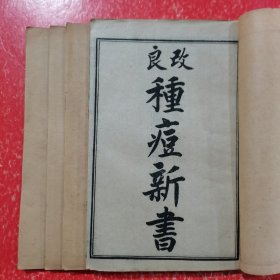 改良
種痘新書